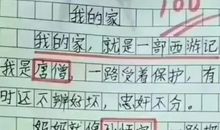 我的家
100
我的家,就是一部西游记
我是唐僧,一路受着保护,有
时还不辨好坏,忠奸不分。
妈妈就像孙悟空